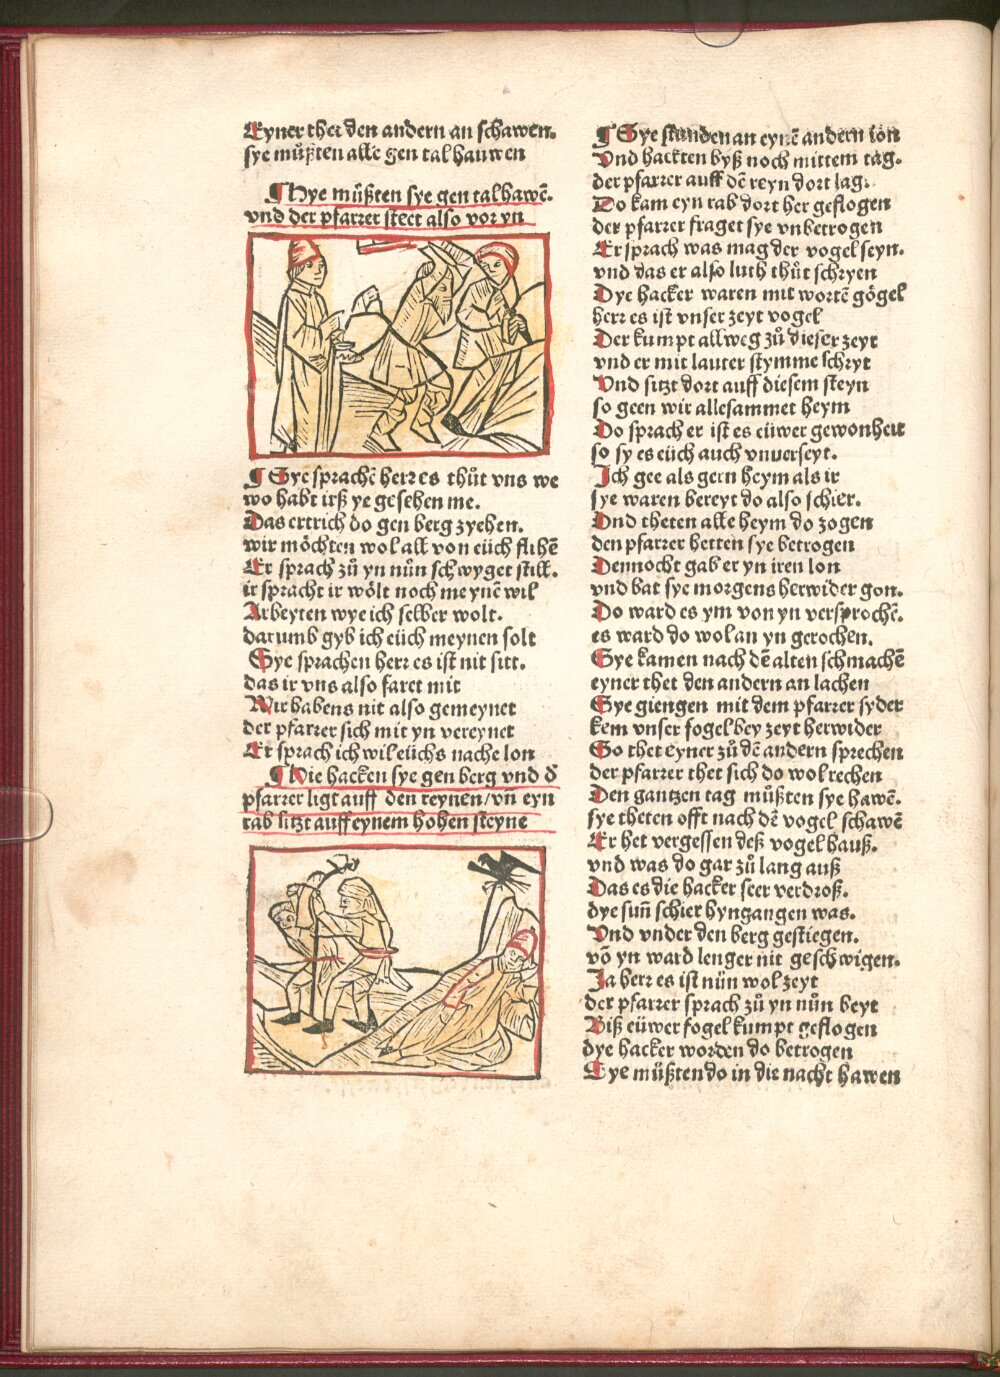 Eyner thet den andern an schawen.
sye müßten alle gen tal hauwen
¶ Hye müßten sye gen tal hawē.
vnd der pfarrer steet also vor yn
¶ Sye sprachē herr es thůt vns we
wo habt irß ye gesehen me.
Das ertrich do gen berg zyehen.
wir möchten wol all von eüch flihē
Er sprach zů yn nůn schwyget still.
ir spracht ir wölt noch meynē wil
Arbeyten wye ich selber wolt.
darumb gyb ich eüch meynen solt
Sye sprachen herr es ist nit sitt.
das ir vns also faret mit
Wir habens nit also gemeynet
der pfarrer sich mit yn vereynet
Er sprach ich wil eüchs nache lon
¶ Wie hacken sye gen berg vnd d̄
pfarrer ligt auff den reynen/ vn̄ eyn
rab sitzt auff eynem hohen steyne
¶ Sye stunden an eynē andern ion
Vnd hackten byß noch mittem tag.
der pfarrer auff dē reyn dort lag.
Do kam eyn rab dort her geflogen
der pfarrer fraget sye vnbetrogen
Er sprach was mag der vogel seyn.
vnd das er also luth thůt schryen
Dye hacker waren mit wortē gögel
herr es ist vnser zeyt vogel
Der kumpt allweg zů dieser zeyt
vnd er mit lauter stymme schryt
Vnd sitzt dort auff diesem steyn
so geen wir allesammet heym
Do sprach er ist es eüwer gewonheit
so sy es eüch auch vnuerseyt.
Ich gee als gern heym als ir
sye waren bereyt do also schier.
Vnd theten alle heym do zogen
den pfarrer hetten sye betrogen
Dennocht gab er yn iren lon
vnd bat sye morgens herwider gon.
Do ward es ym von yn versprochē.
es ward do wol an yn gerochen.
Sye kamen nach dē alten schmachē
eyner thet den andern an lachen
Sye giengen mit dem pfarrer syder
kem vnser fogel bey zeyt herwider
So thet eyner zů dē andern sprechen
der pfarrer thet sich do wol rechen
Den gantzen tag müßten sye hawē.
sye theten offt nach dē vogel schawē
Er het vergessen deß vogel hauß.
vnd was do gar zů lang auß
Das es die hacker seer verdroß.
dye sun̄ schier hyngangen was.
Vnd vnder den berg gestiegen.
vō yn ward lenger nit geschwigen.
Ja herr es ist nün wol zeyt
der pfarrer sprach zů yn nůn beyt
Biß eüwer fogel kumpt geflogen
dye hacker worden do betrogen
Sye müßten do in die nacht hawen